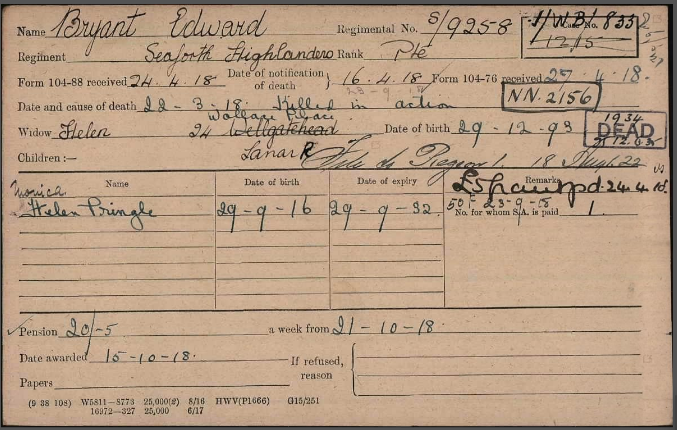 Name Bryant Edward Regimental No. S/9258 1/W.B/.833 Case No. 12/5
Regiment Seaforth Highlanders Rank Pte
Form 104-88 received 24.4.18 Date of notification of death } 16.4.18 Form 104-76 received 27.4.18.
23-9-18
Date and cause of death 22-3-18. Killed in action NN.2156
Wallace Place
Widow Helen 24 Wellgatehead Date of birth 29-12-93 1934 DEAD
Children :— Lanark 18
Name Date of birth Date of expiry Remarks
Monica £5 paid 24.4.18.
Helen Pringle 29-9-16 29-9-32. 50/ 23-9-18
No. for whom S.A. is paid 1.
Pension 20/-5 a week from 21-10-18.
Date awarded 15-10-18. If refused, reason
Papers
(9 38 108) W5811—8773 25,000(2) 8/16 HWV(P1666) G15/251
16972—327 25,000 6/17